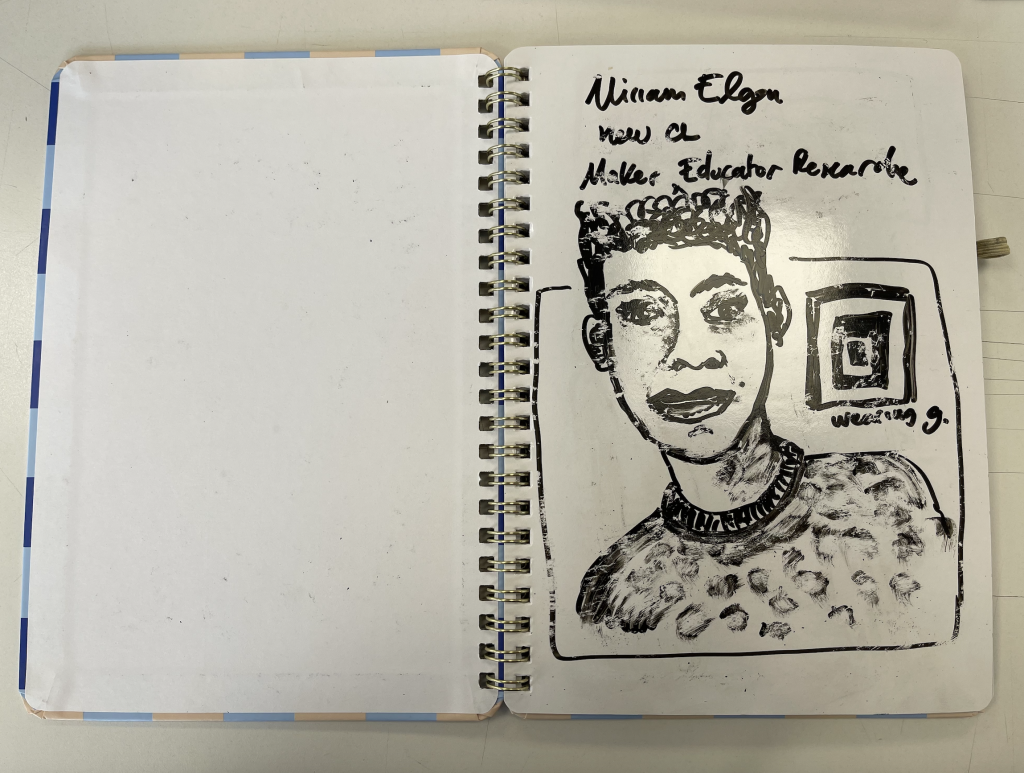 Miriam Elgon
now a
Maker Educator Researche
weaving g.